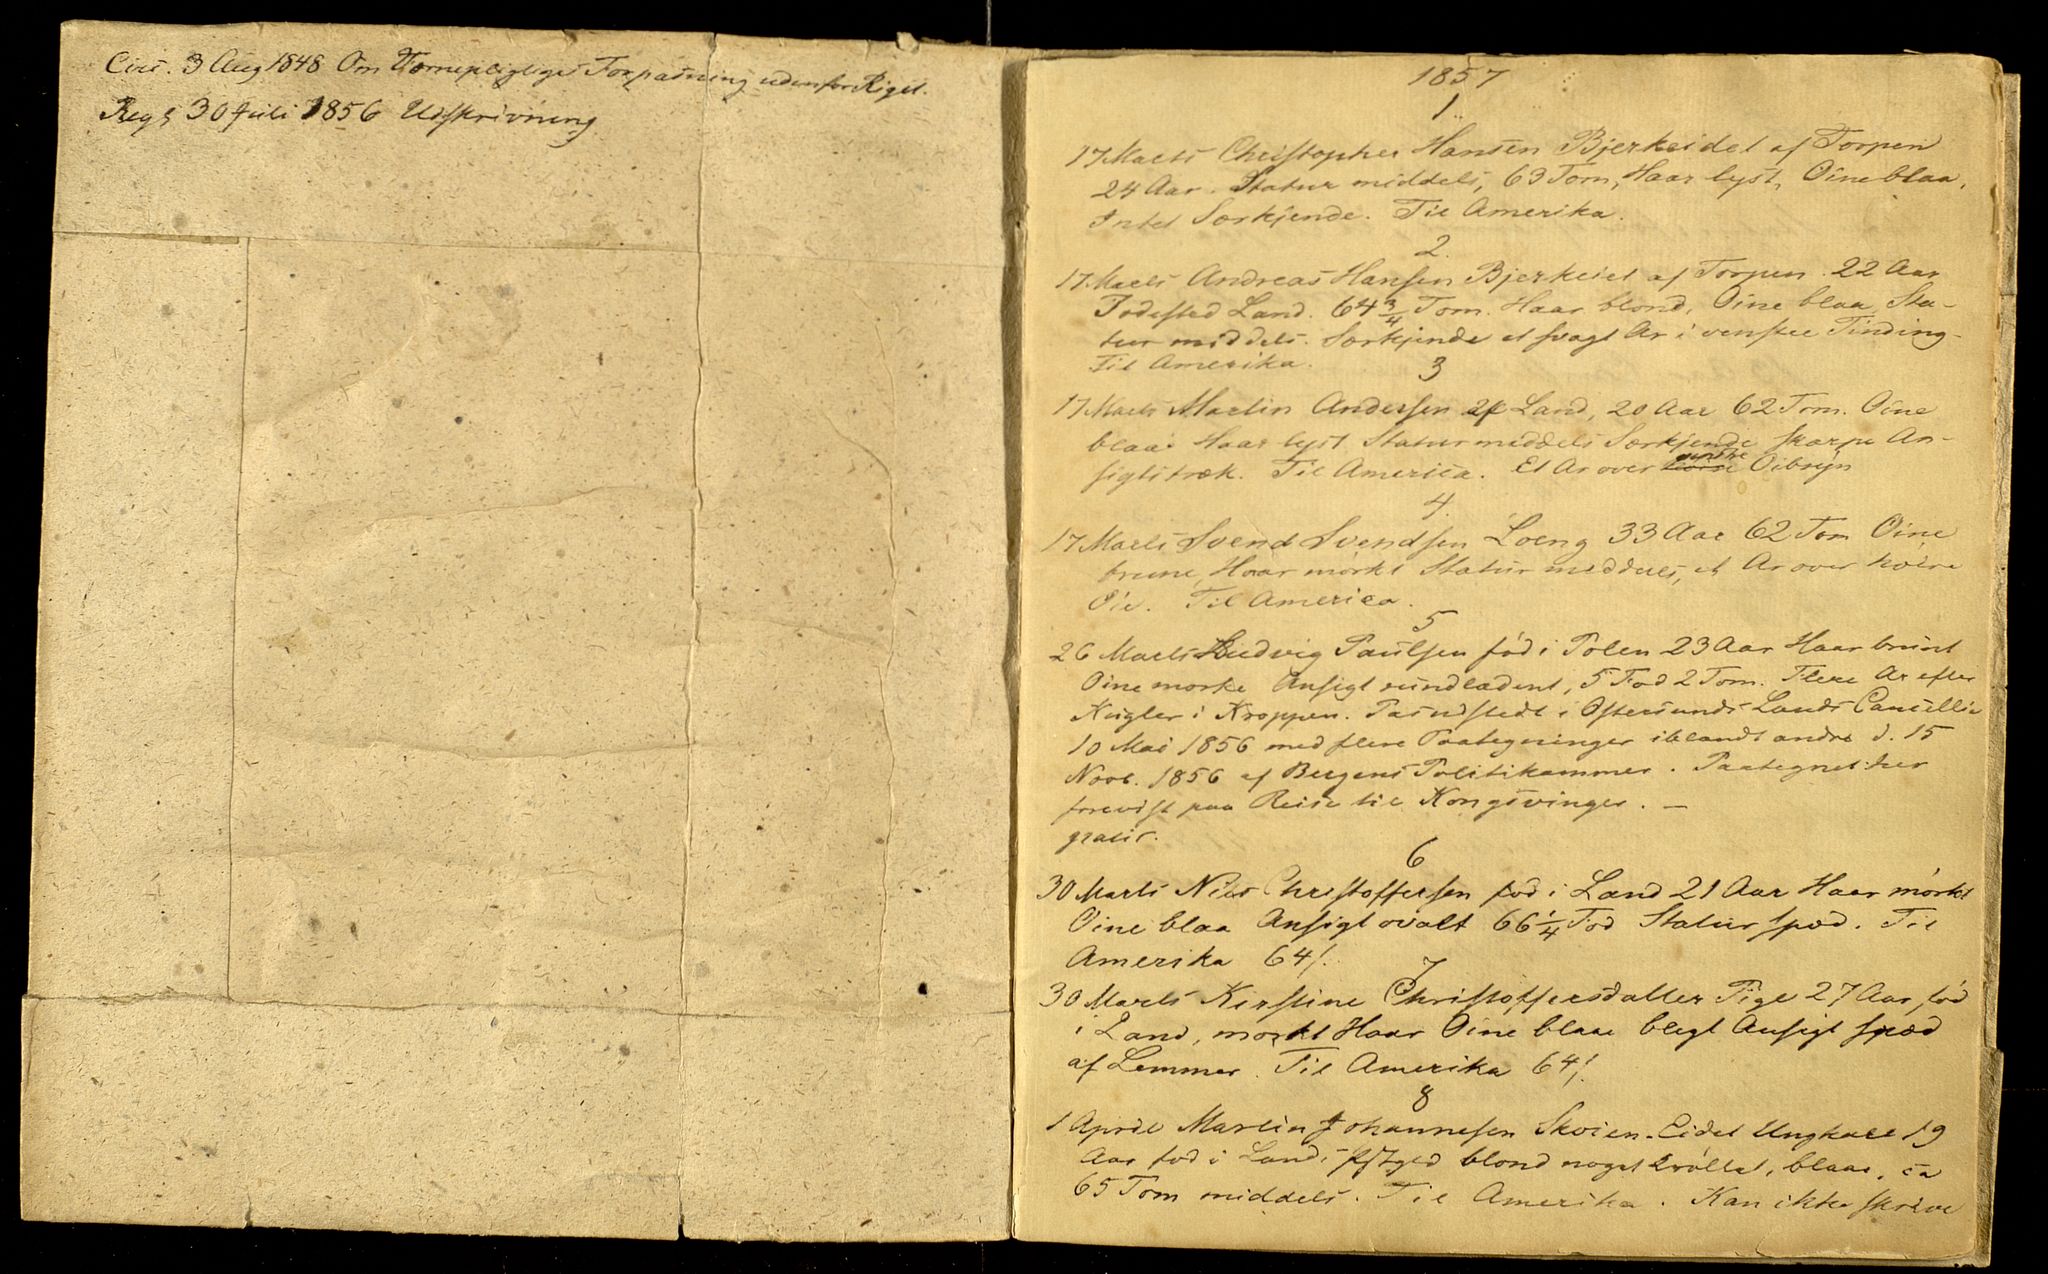 Circ. 3 Aug 1848 Om Værnepligtiges Forpasning udenfor Riget.
Regl 30 Juli 1856 Udskrivning
1857
1
17 Marts Christopher Hansen Bjerkeidet af Torpen
24 Aar. Statur middels, 63 Tom, Haar lyst, Öine blaa,
Intet Særkjende. Til Amerika.
2.
17 Marts Andreas Hansen Bjerkeiet af Torpen. 22 Aar
Fodested Land. 64 3/4 Tom. Haar blond, Öine blaa, Sta-
tur middels. Særkjende et svagt Ar i venstre Tinding.
Til Amerika.
3
17 Marts Martin Andersen af Land, 20 Aar 62 Tom. Öine
blaa Haar lyst Statur middels Særkjende skarpe An-
sigtstræk. Til America. Et Ar over venstre Öibryn
4.
17 Marts Svend Svendsen Loeng 33 Aar 62 Tom Öine
brune, Haar mörkt Statur middels, et Ar over höire
Öie. Til America.
5
26 Marts Ludvig Paulsen föd i Polen 23 Aar Haar brunt
Öine morke Ansigt rundladent, 5 Fod 2 Tom. Flere Ar efter
Kugler i Kroppen. Pas udstedt i Ostersunds Lands Cancellie
10 Mai 1856 med flere Paategninger iblandt andre d. 15
Novb. 1856 af Bergens Politikammer. Paategnet her
forevist paa Reise til Kongsvinger. —
gratis.
6
30 Marts Nils Christoffersen fod i Land 21 Aar Haar mörkt
Öine blaa Ansigt ovalt 66 1/4 Fod Statur spæd. Til
Amerika 64/.
7
30 Marts Kirstine Christoffersdatter Pige 27 Aar, föd
i Land, morkt Haar Öine blaa blegt Ansigt spæd
af Lemmer. Til Amerika 64/.
8
1 April Martin Johannesen Skoien-Eidet Ungkarl 19
Aar fod i Land, blond noget, blaa, ca
65 Tom middels. Til Amerika. Kan ikke skrive